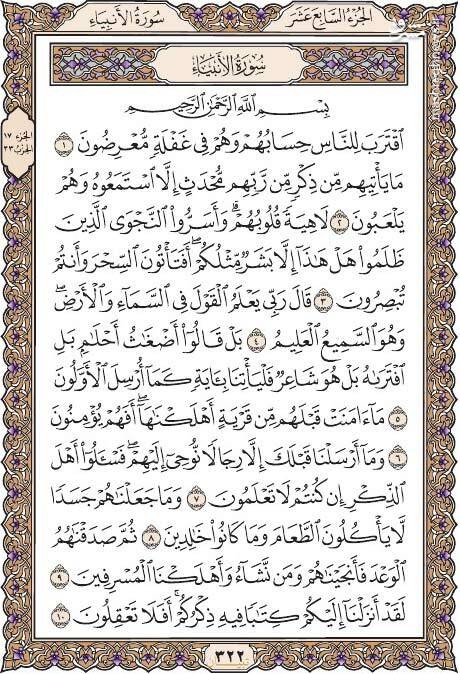 سُورَةُ الأَنبِيَاءِ الجُزْءُ السَّابِعَ عَشَرَ
سُورَةُ الأَنبِيَاءِ
الجزء ١٧
الحزب ٣٣
بِسْمِ ٱللَّهِ ٱلرَّحْمَٰنِ ٱلرَّحِيمِ
ٱقْتَرَبَ لِلنَّاسِ حِسَابُهُمْ وَهُمْ فِى غَفْلَةٍ مُّعْرِضُونَ ١
مَا يَأْتِيهِم مِّن ذِكْرٍ مِّن رَّبِّهِم مُّحْدَثٍ إِلَّا ٱسْتَمَعُوهُ وَهُمْ
يَلْعَبُونَ ٢ لَاهِيَةً قُلُوبُهُمْ ۗ وَأَسَرُّوا۟ ٱلنَّجْوَى ٱلَّذِينَ
ظَلَمُوا۟ هَلْ هَٰذَآ إِلَّا بَشَرٌ مِّثْلُكُمْ ۖ أَفَتَأْتُونَ ٱلسِّحْرَ وَأَنتُمْ
تُبْصِرُونَ ٣ قَالَ رَبِّى يَعْلَمُ ٱلْقَوْلَ فِى ٱلسَّمَآءِ وَٱلْأَرْضِ ۖ
وَهُوَ ٱلسَّمِيعُ ٱلْعَلِيمُ ٤ بَلْ قَالُوٓا۟ أَضْغَٰثُ أَحْلَٰمٍۭ بَلِ
ٱفْتَرَىٰهُ بَلْ هُوَ شَاعِرٌ فَلْيَأْتِنَا بِـَٔايَةٍ كَمَآ أُرْسِلَ ٱلْأَوَّلُونَ
٥ مَآ ءَامَنَتْ قَبْلَهُم مِّن قَرْيَةٍ أَهْلَكْنَٰهَآ ۖ أَفَهُمْ يُؤْمِنُونَ
٦ وَمَآ أَرْسَلْنَا قَبْلَكَ إِلَّا رِجَالًا نُّوحِىٓ إِلَيْهِمْ ۖ فَسْـَٔلُوٓا۟ أَهْلَ
ٱلذِّكْرِ إِن كُنتُمْ لَا تَعْلَمُونَ ٧ وَمَا جَعَلْنَٰهُمْ جَسَدًا
لَّا يَأْكُلُونَ ٱلطَّعَامَ وَمَا كَانُوا۟ خَٰلِدِينَ ٨ ثُمَّ صَدَقْنَٰهُمُ
ٱلْوَعْدَ فَأَنجَيْنَٰهُمْ وَمَن نَّشَآءُ وَأَهْلَكْنَا ٱلْمُسْرِفِينَ ٩
لَقَدْ أَنزَلْنَآ إِلَيْكُمْ كِتَٰبًا فِيهِ ذِكْرُكُمْ ۖ أَفَلَا تَعْقِلُونَ ١٠
٣٢٢